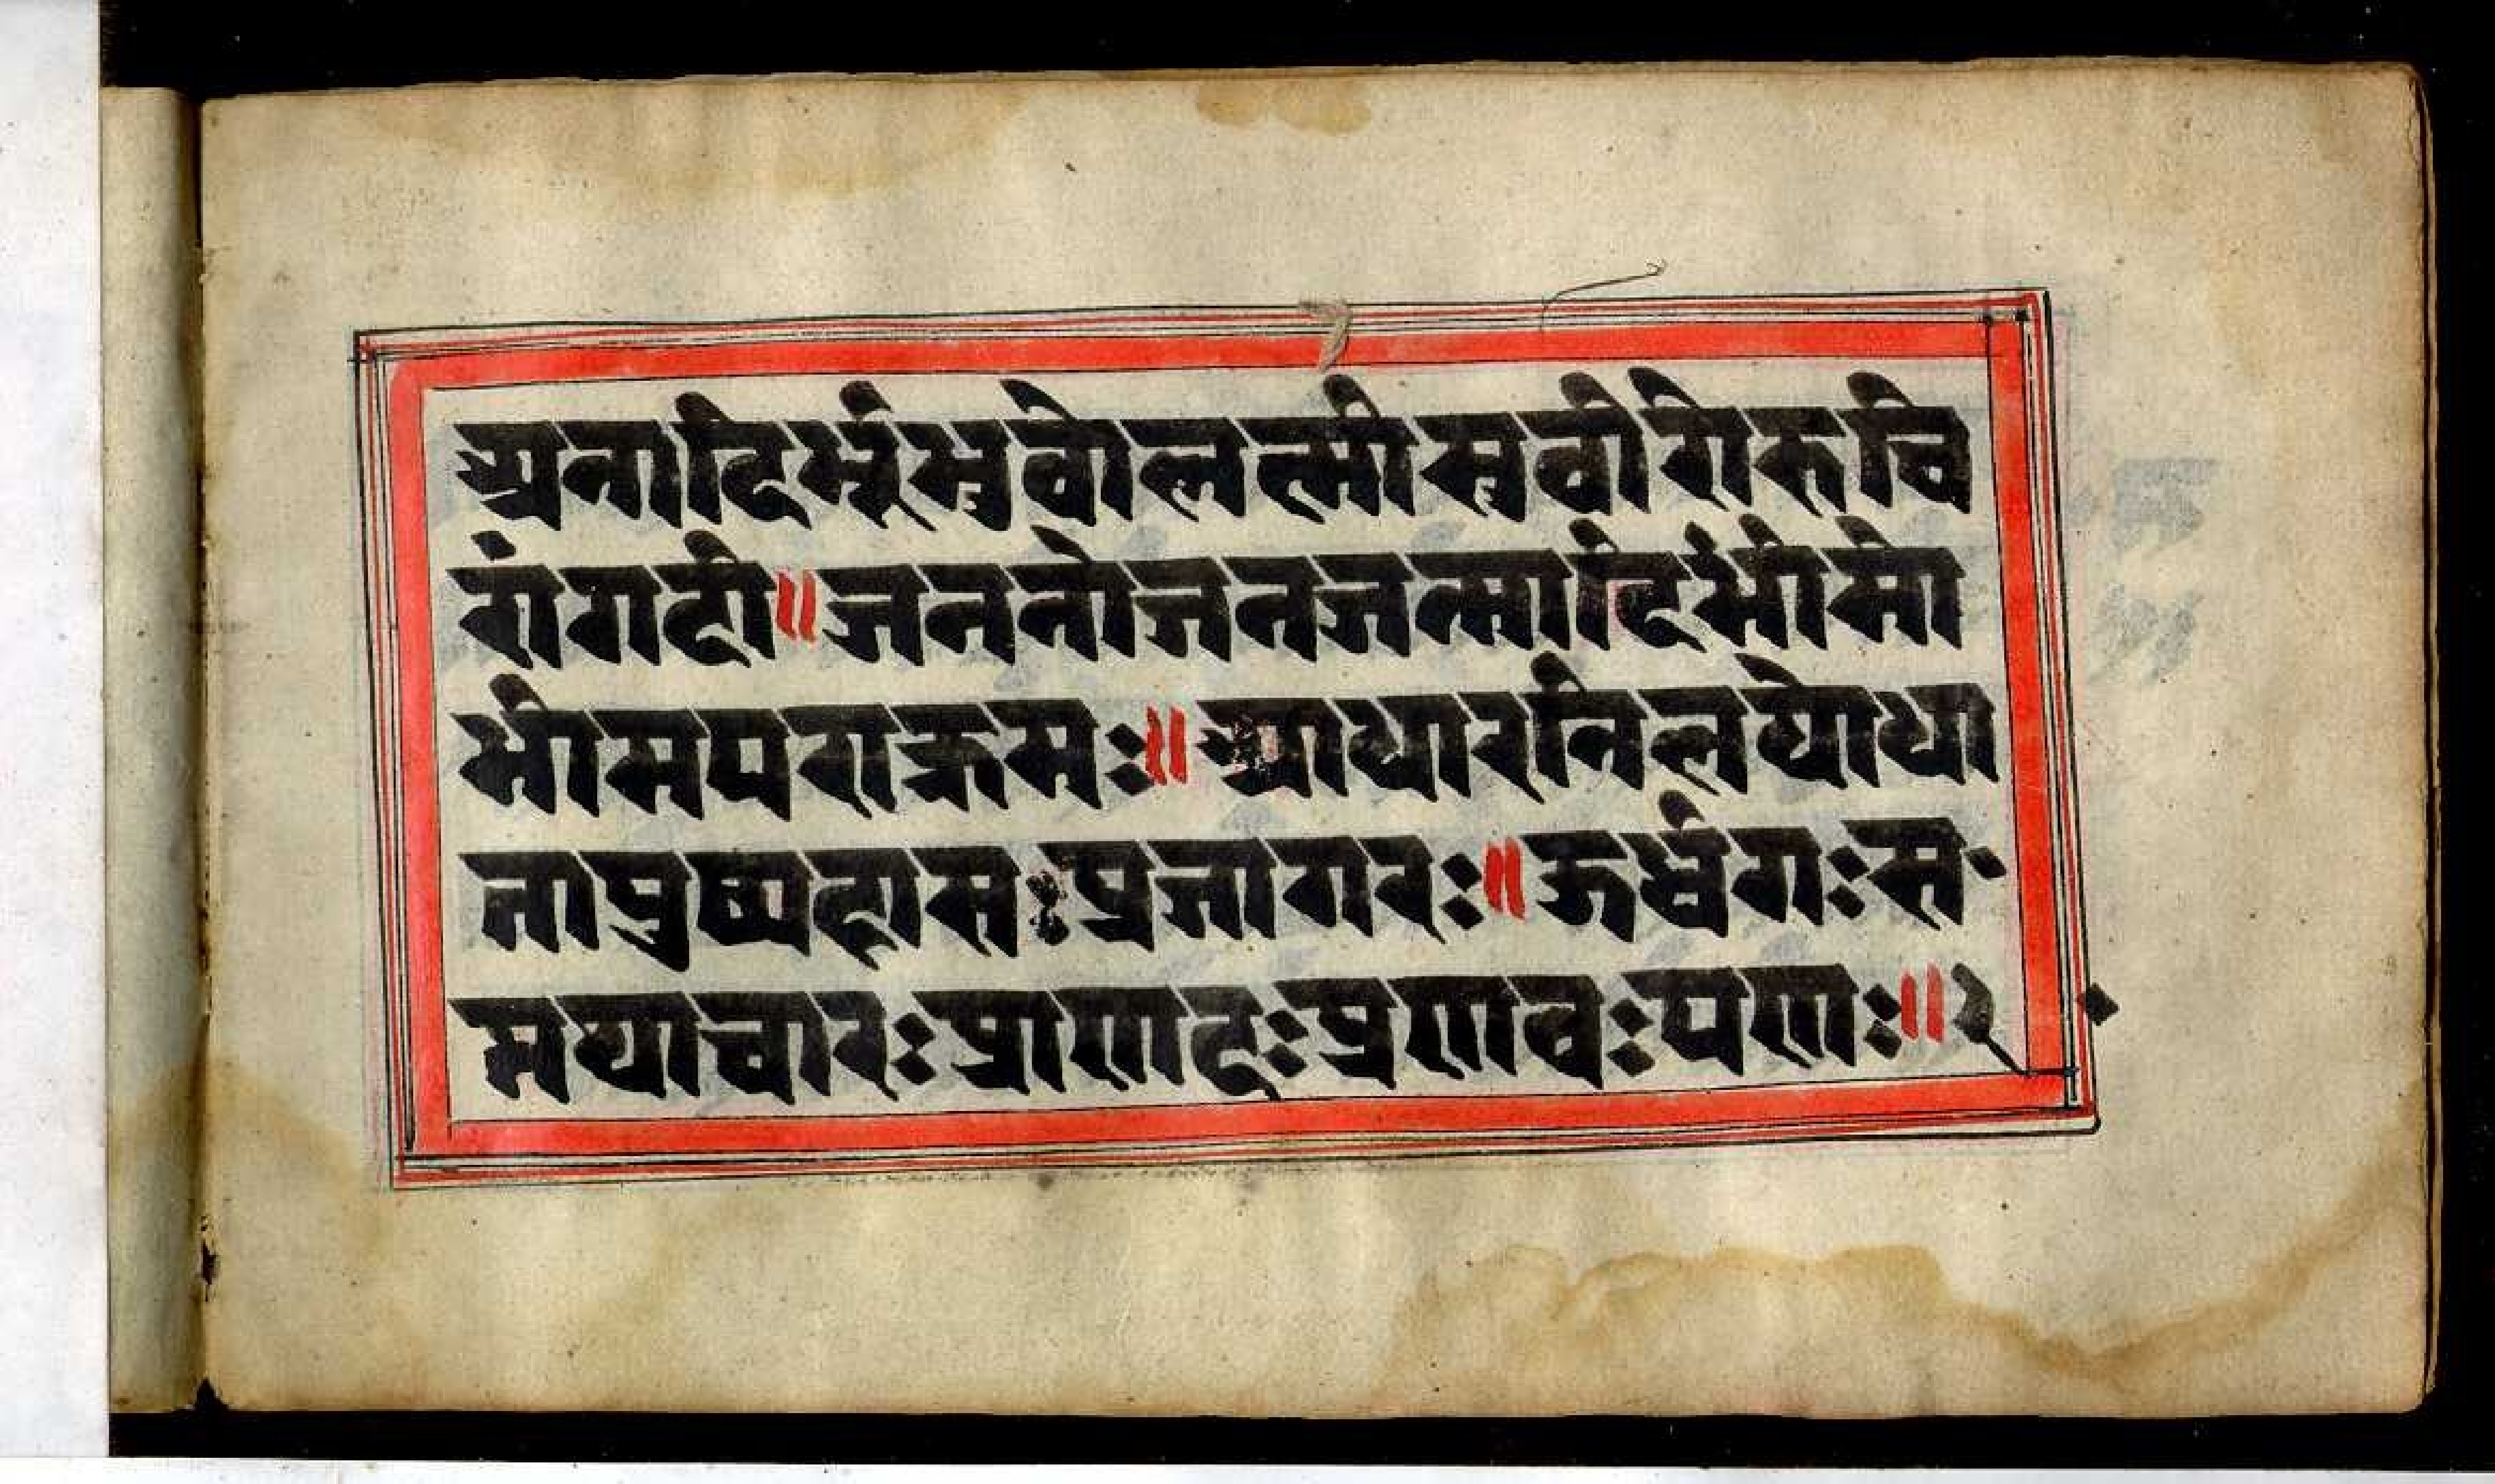 अनादिर्भूर्भुवोलक्ष्मीसुवीरोरुचि
रांगदो॥जननोजनजन्मादिर्भीमो
भीमपराक्रमः॥आधारनिलयोधा
तापुष्पहासःप्रजागरः॥ऊर्ध्वगःस
त्पथाचारःप्राणदःप्रणवःपणः॥२